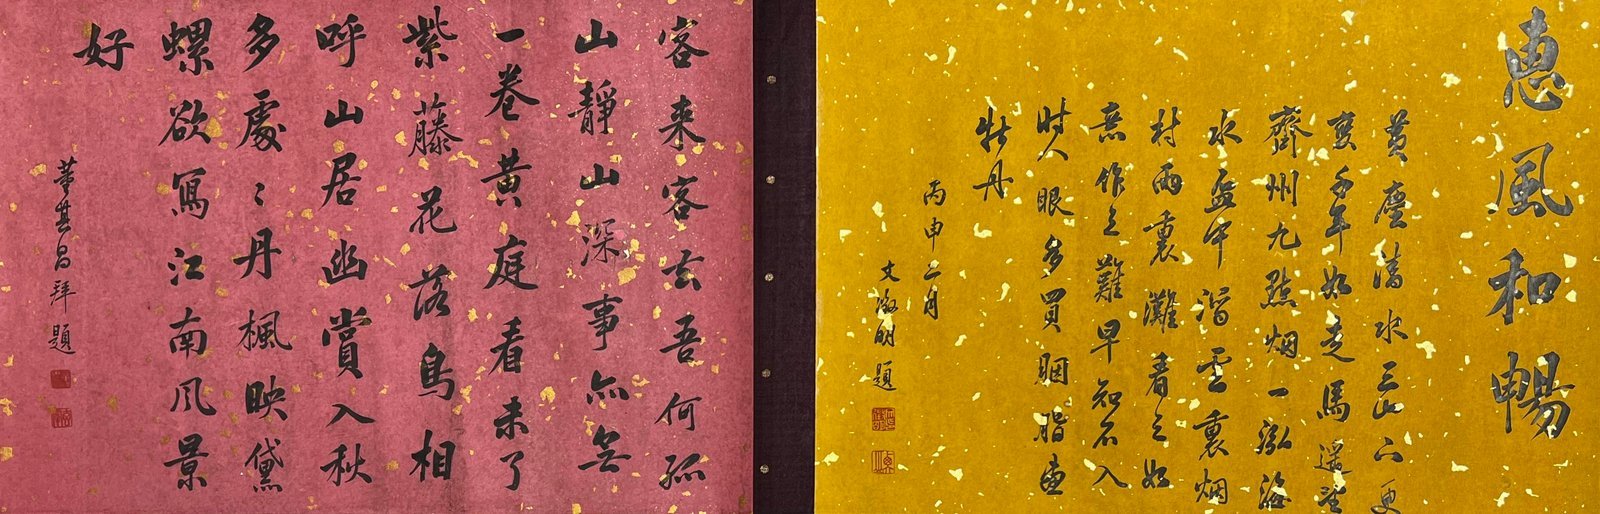 惠風和暢
黃塵清水三山下更
變千年如走馬遥望
齊州九點烟一泓海
水盃中瀉雲裏烟
村雨裏灘看之如
作之難早知不入
時人眼多買胭脂畫
牡丹
丙申二月
文徵明題
客來客去吾何孤
山靜山深事亦無
一卷黃庭看未了
紫藤花落鳥相
呼山居幽賞入秋
多處〻丹楓映黛
螺欲寫江南風景
好
董其昌拜題